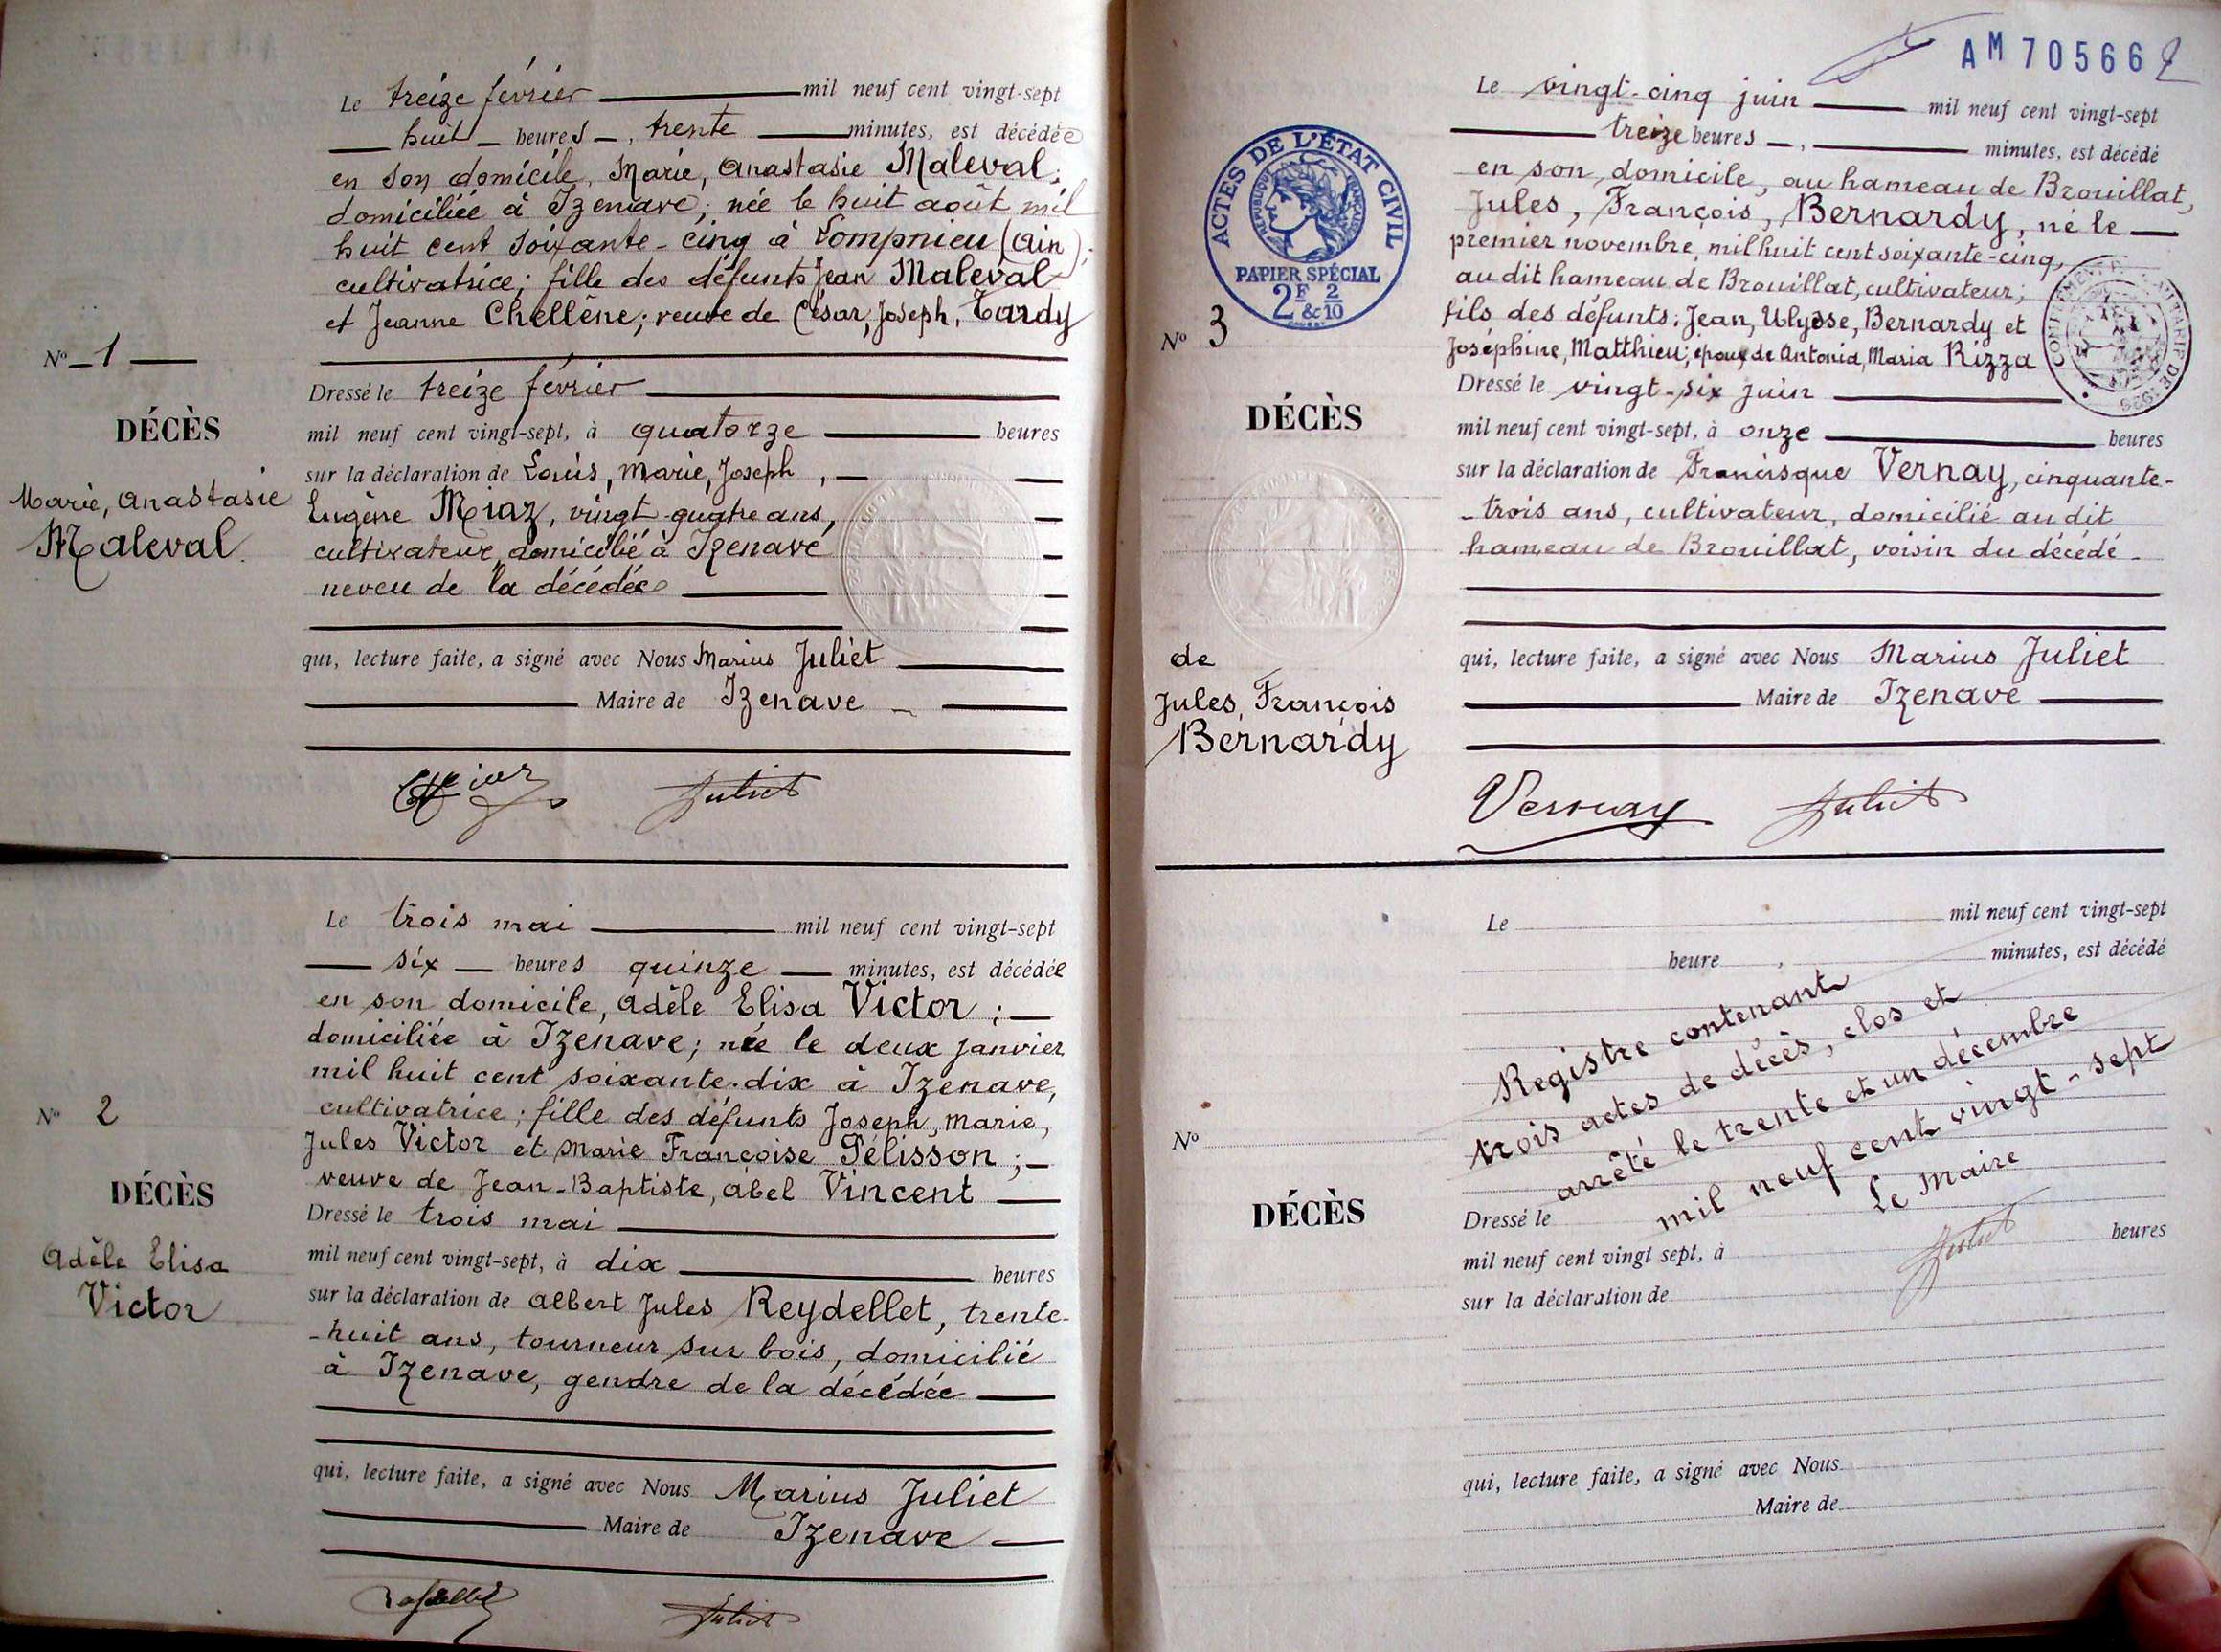 Le treize février mil neuf cent vingt-sept
huit heures, trente minutes, est décédée
en son domicile, Marie, Anastasie Maleval;
domiciliée à Izenave; née le huit août mil
huit cent soixante-cinq à Lompnieu (Ain);
cultivatrice; fille des défunts Jean Maleval
et Jeanne Chellène; veuve de César, Joseph, Tardy
No 1
Dressé le treize février
DÉCÈS
mil neuf cent vingt-sept, à quatorze heures
Marie, Anastasie
Maleval
sur la déclaration de Louis, Marie, Joseph,
Eugène Miaz, vingt-quatre ans,
cultivateur, domicilié à Izenave
neveu de la décédée
qui, lecture faite, a signé avec Nous Marius Juliet
Maire de Izenave
Juliet
Le trois mai mil neuf cent vingt-sept
six heures quinze minutes, est décédée
en son domicile, Adèle Elisa Victor;
domiciliée à Izenave; née le deux janvier
mil huit cent soixante-dix à Izenave,
cultivatrice; fille des défunts Joseph, Marie,
Jules Victor et Marie Françoise Pélisson;
veuve de Jean-Baptiste, Abel Vincent
No 2
DÉCÈS
Adèle Elisa
Victor
Dressé le trois mai
mil neuf cent vingt-sept, à dix heures
sur la déclaration de Albert Jules Reydellet, trente-
-huit ans, tourneur sur bois, domicilié
à Izenave, gendre de la décédée
qui, lecture faite, a signé avec Nous Marius Juliet
Maire de Izenave
Juliet
AM 705662
ACTES DE L'ÉTAT CIVIL
RÉPUBLIQUE FRANÇAISE
PAPIER SPÉCIAL
2F & 2/10
Le vingt-cinq juin mil neuf cent vingt-sept
treize heures, minutes, est décédé
en son domicile, au hameau de Brouillat,
Jules, François, Bernardy, né le
premier novembre, mil huit cent soixante-cinq,
au dit hameau de Brouillat, cultivateur;
fils des défunts: Jean, Ulysse, Bernardy et
Joséphine, Matthieu; époux de Antonia, Maria Rizza
No 3
DÉCÈS
de
Jules, François
Bernardy
Dressé le vingt-six juin
mil neuf cent vingt-sept, à onze heures
sur la déclaration de Francisque Vernay, cinquante-
-trois ans, cultivateur, domicilié au dit
hameau de Brouillat, voisin du décédé
qui, lecture faite, a signé avec Nous Marius Juliet
Maire de Izenave
Vernay Juliet
Le mil neuf cent vingt-sept
heure, minutes, est décédé
Registre contenant
trois actes de décès, clos et
arrêté le trente et un décembre
mil neuf cent vingt-sept
Le Maire
Juliet
No
DÉCÈS
Dressé le
mil neuf cent vingt sept, à heures
sur la déclaration de
qui, lecture faite, a signé avec Nous
Maire de